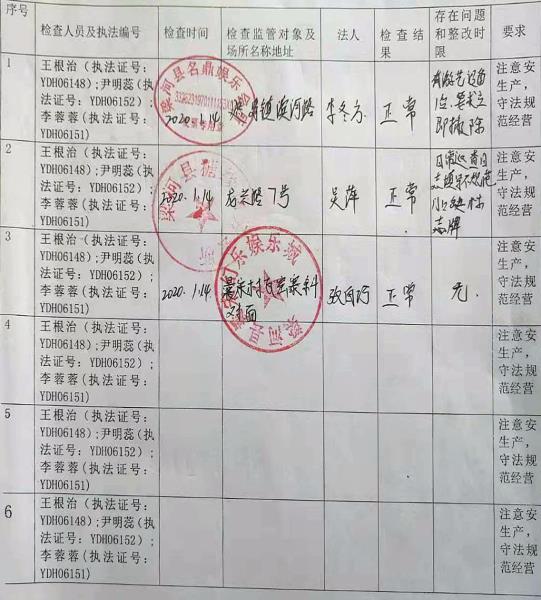 序号
检查人员及执法编号
检查时间
检查监管对象及
场所名称地址
法人
检查结
果
存在问题
和整改时
限
要求
1
王根治（执法证号：
YDH06148）;尹明蕊(执
法证号：YDH06152）；
李蓉蓉（执法证号：
YDH06151)
2020.1.14
正常
注意安
生产，
守法规
范经营
梁河县名鼎娱乐会
2
王根治（执法证号：
YDH06148）;尹明蕊(执
法证号：YDH06152）；
李蓉蓉（执法证号：
YDH06151)
2020.1.14
龙兴路7号
吴萍
正常
注意安
生产，
守法规
范经营
梁河县
3
王根治（执法证号：
YDH06148）;尹明蕊(执
法证号：YDH06152）；
李蓉蓉（执法证号：
YDH06151)
2020.1.14
对面
正常
无.
注意安
生产，
守法规
范经营
乐娱乐城
梁河县
4
王根治（执法证号：
YDH06148）;尹明蕊(执
法证号：YDH06152）；
李蓉蓉（执法证号：
YDH06151)
注意安
生产，
守法规
范经营
5
王根治（执法证号：
YDH06148）;尹明蕊(执
法证号：YDH06152）；
李蓉蓉（执法证号：
YDH06151)
注意安
生产，
守法规
范经营
6
王根治（执法证号：
YDH06148）;尹明蕊(执
法证号：YDH06152）；
李蓉蓉（执法证号：
YDH06151)
注意安
生产，
守法规
范经营